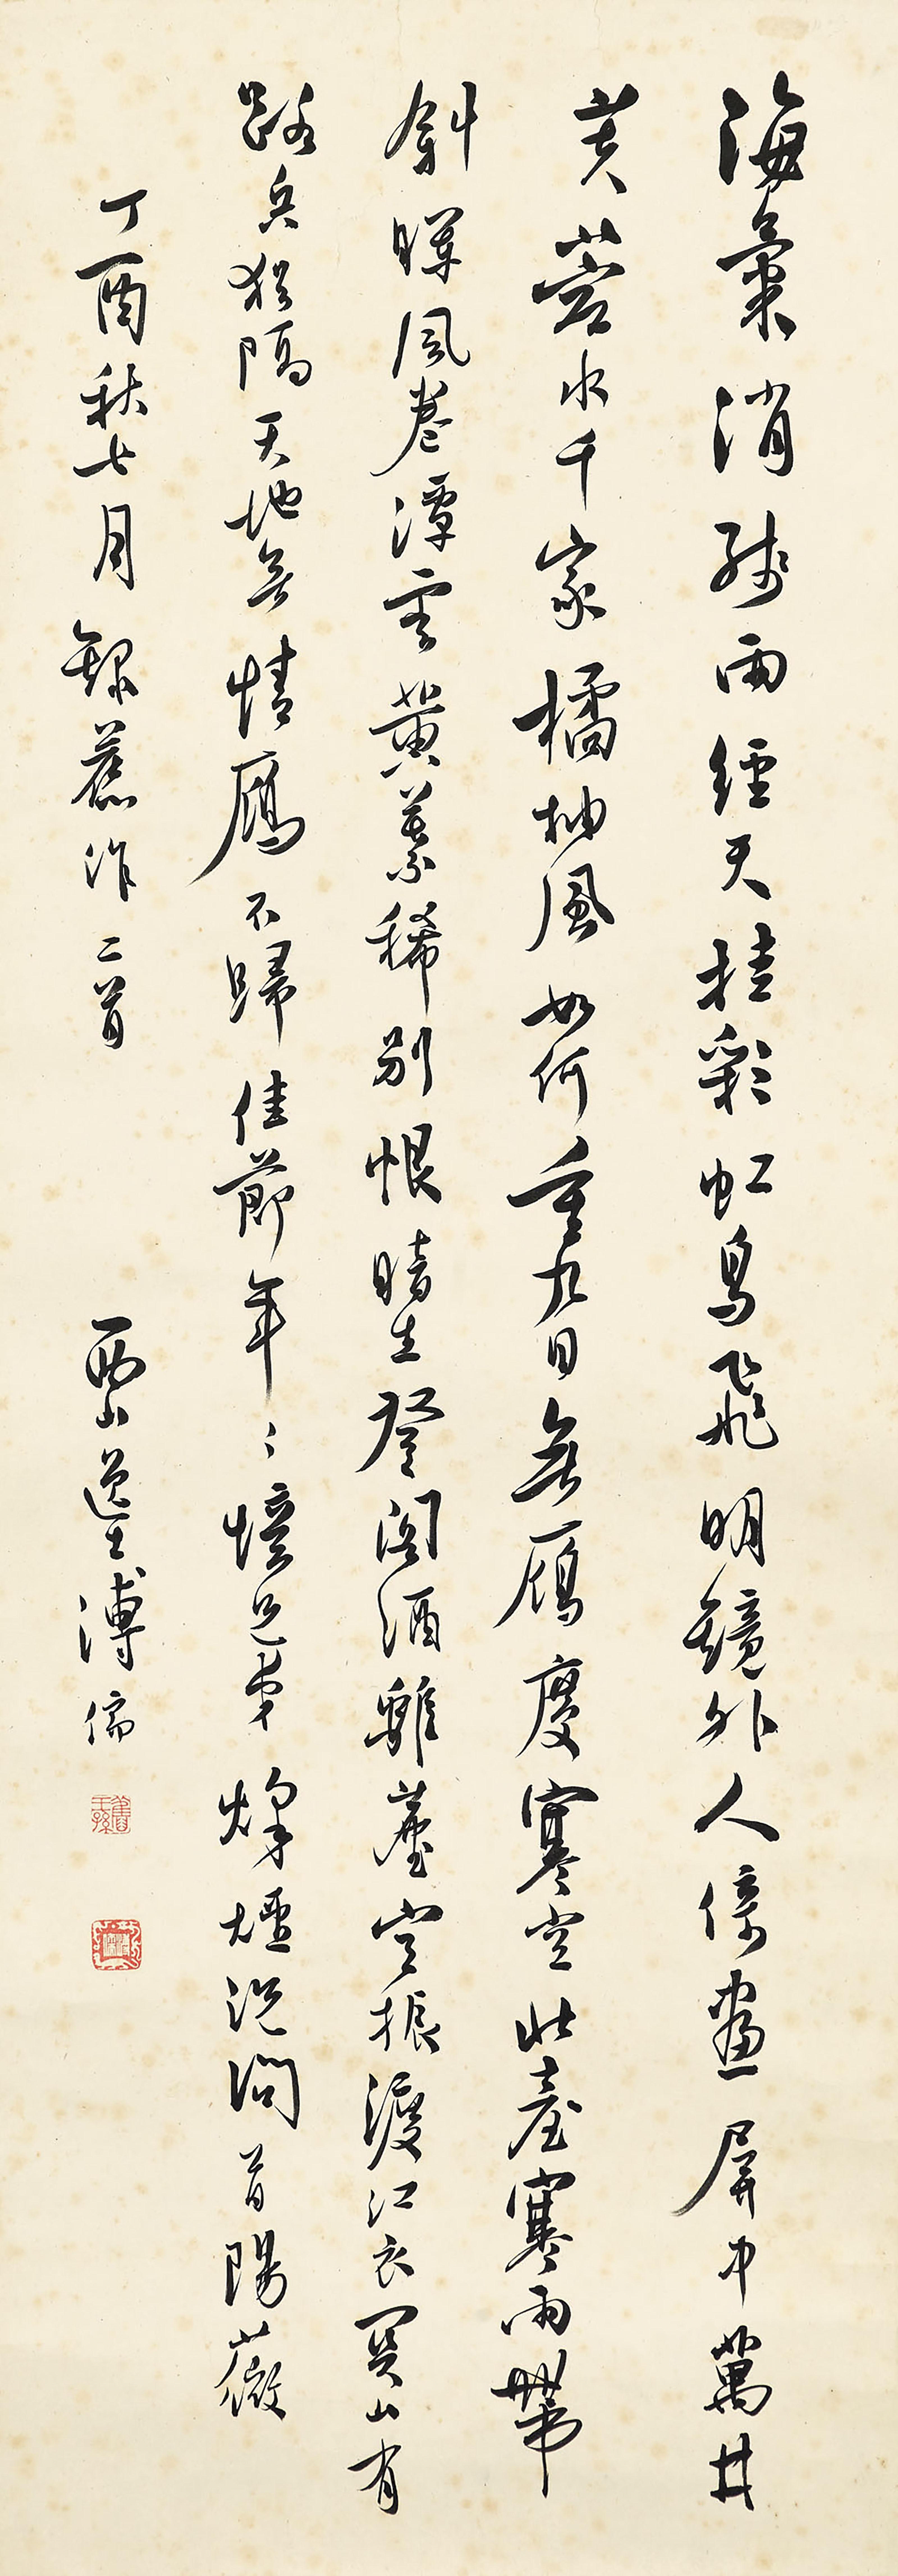 海氣消殘雨經天挂彩虹鳥飛明鏡外人倚畫屏中萬井
芙蓉水千家橘柚風如何重九日無雁度寒空北臺寒雨帶
斜暉風卷潭雲黃葉稀別恨暗生登閣酒離塵空振渡江衣關山有
路兵猶隔天地無情雁不歸佳節年〻憶兄弟烽煙況問首陽薇
丁酉秋七月錄舊作二首 西山逸士溥儒
舊王孫